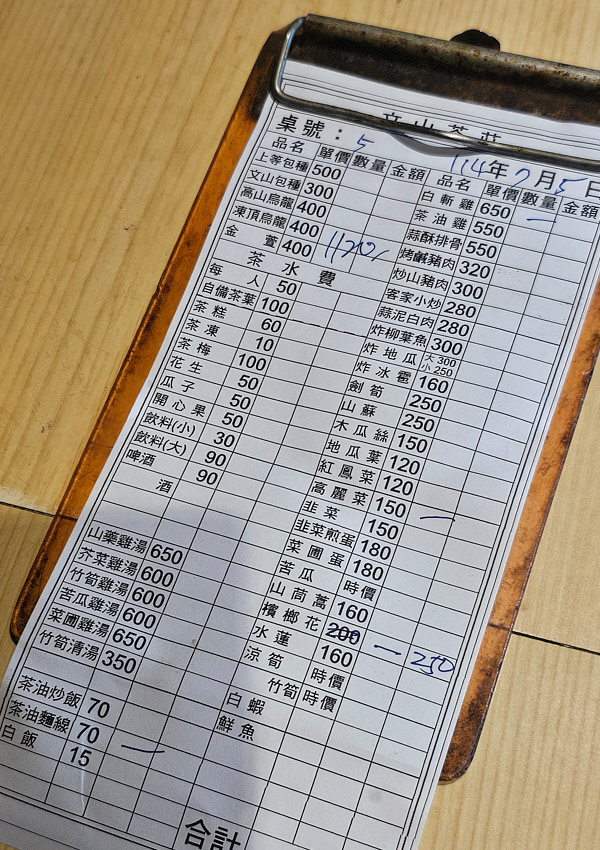 文山茶莊
桌號：5 114年7月5日
品名 單價 數量 金額
上等包種 500
文山包種 300
高山烏龍 400
凍頂烏龍 400
金萱 400
茶水費
每人 50
自備茶葉 100
茶糕 60
茶凍 10
茶梅 100
花生 50
瓜子 50
開心果 50
飲料(小) 30
飲料(大) 90
啤酒 90
酒
山藥雞湯 650
芥菜雞湯 600
竹筍雞湯 600
苦瓜雞湯 600
菜圃雞湯 650
竹筍清湯 350
茶油炒飯 70
茶油麵線 70 一
白飯 15
品名 單價 數量 金額
白斬雞 650 一
茶油雞 550
蒜酥排骨 550
烤鹹豬肉 320
炒山豬肉 300
客家小炒 280
蒜泥白肉 280
炸柳葉魚 300
炸地瓜 大 300 小 250
炸冰雹 160
劍筍 250
山蘇 250
木瓜絲 150
地瓜葉 120
紅鳳菜 120
高麗菜 150 一
韭菜 150
韭菜煎蛋 180
菜圃蛋 180
苦瓜 時價
山茼蒿 160
檳榔花 200 一 250
水蓮 160
涼筍 時價
竹筍 時價
白蝦
鮮魚
合計